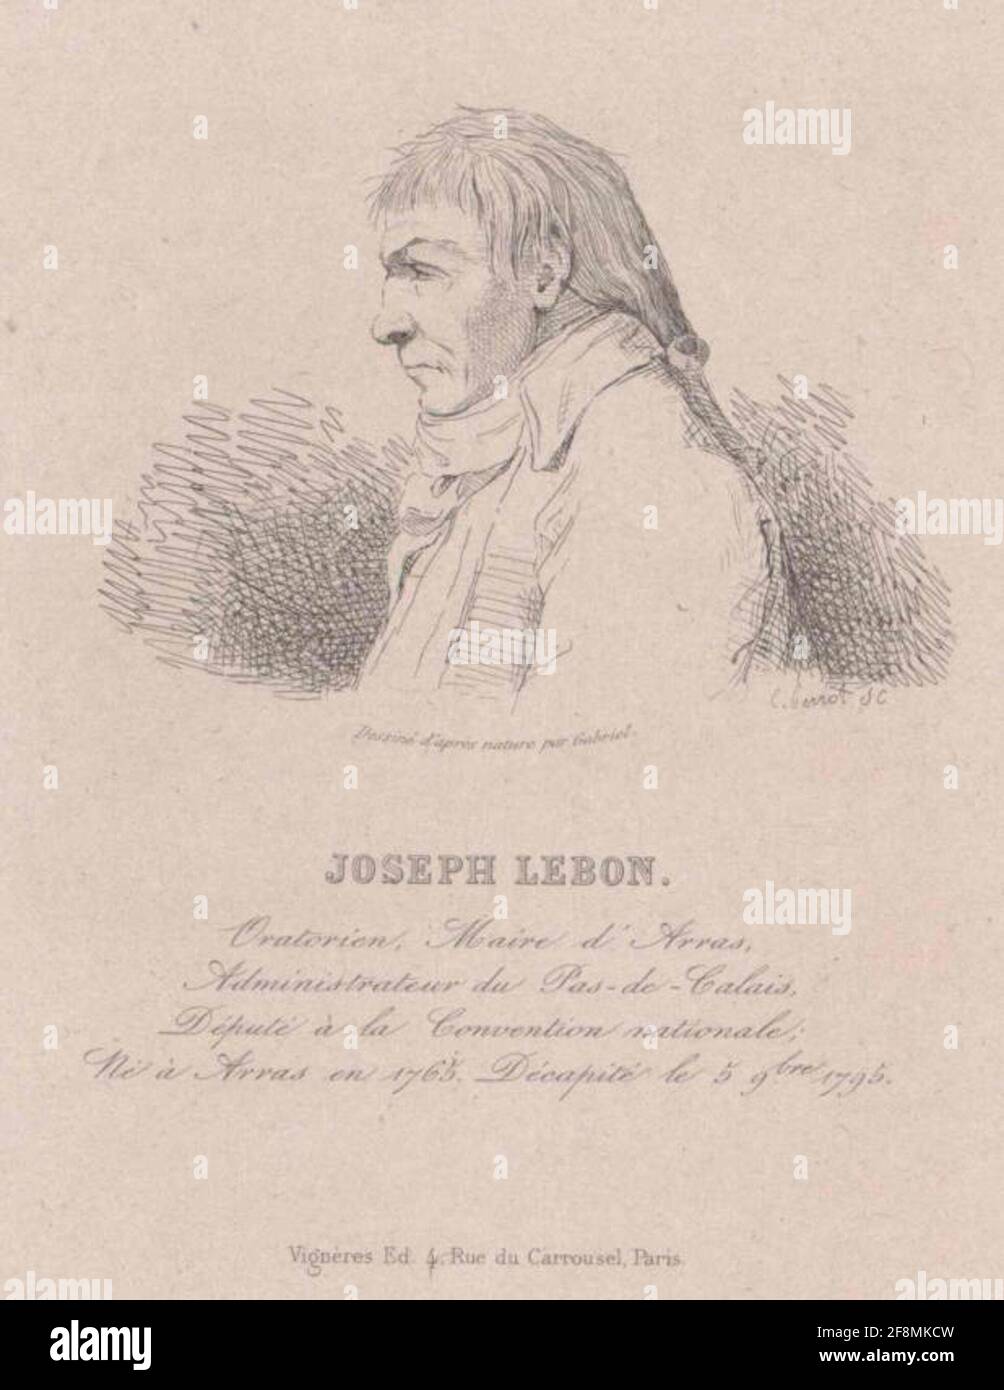 alamy
C. Perrot SC
Dessiné d'après nature par Gabriel.
JOSEPH LEBON.
Oratorien, Maire d'Arras,
Administrateur du Pas-de-Calais,
Député à la Convention nationale;
Né à Arras en 1765. Décapité le 5 9bre 1795.
Vignères Ed. 4, Rue du Carrousel, Paris.
alamy
Image ID: 2F8MKCW
www.alamy.com